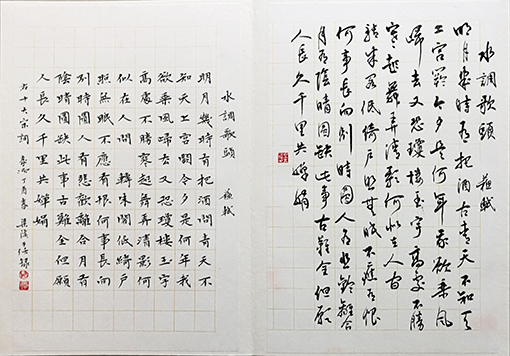 水調歌頭 蘇軾
明月幾時有把酒問青天不知天
上宮闕今夕是何年我欲乘風
歸去又恐瓊樓玉宇高處不勝
寒起舞弄清影何似在人間
轉朱閣低綺戶照無眠不應有恨
何事長向別時圓人有悲歡離合
月有陰晴圓缺此事古難全但願
人長久千里共嬋娟
水調歌頭 蘇軾
明月幾時有把酒問青天不
知天上宮闕今夕是何年我
欲乘風歸去又恐瓊樓玉宇
高處不勝寒起舞弄清影何
似在人間 轉朱閣低綺戶
照無眠不應有恨何事長向
別時圓人有悲歡離合月有
陰晴圓缺此事古難全但願
人長久千里共嬋娟